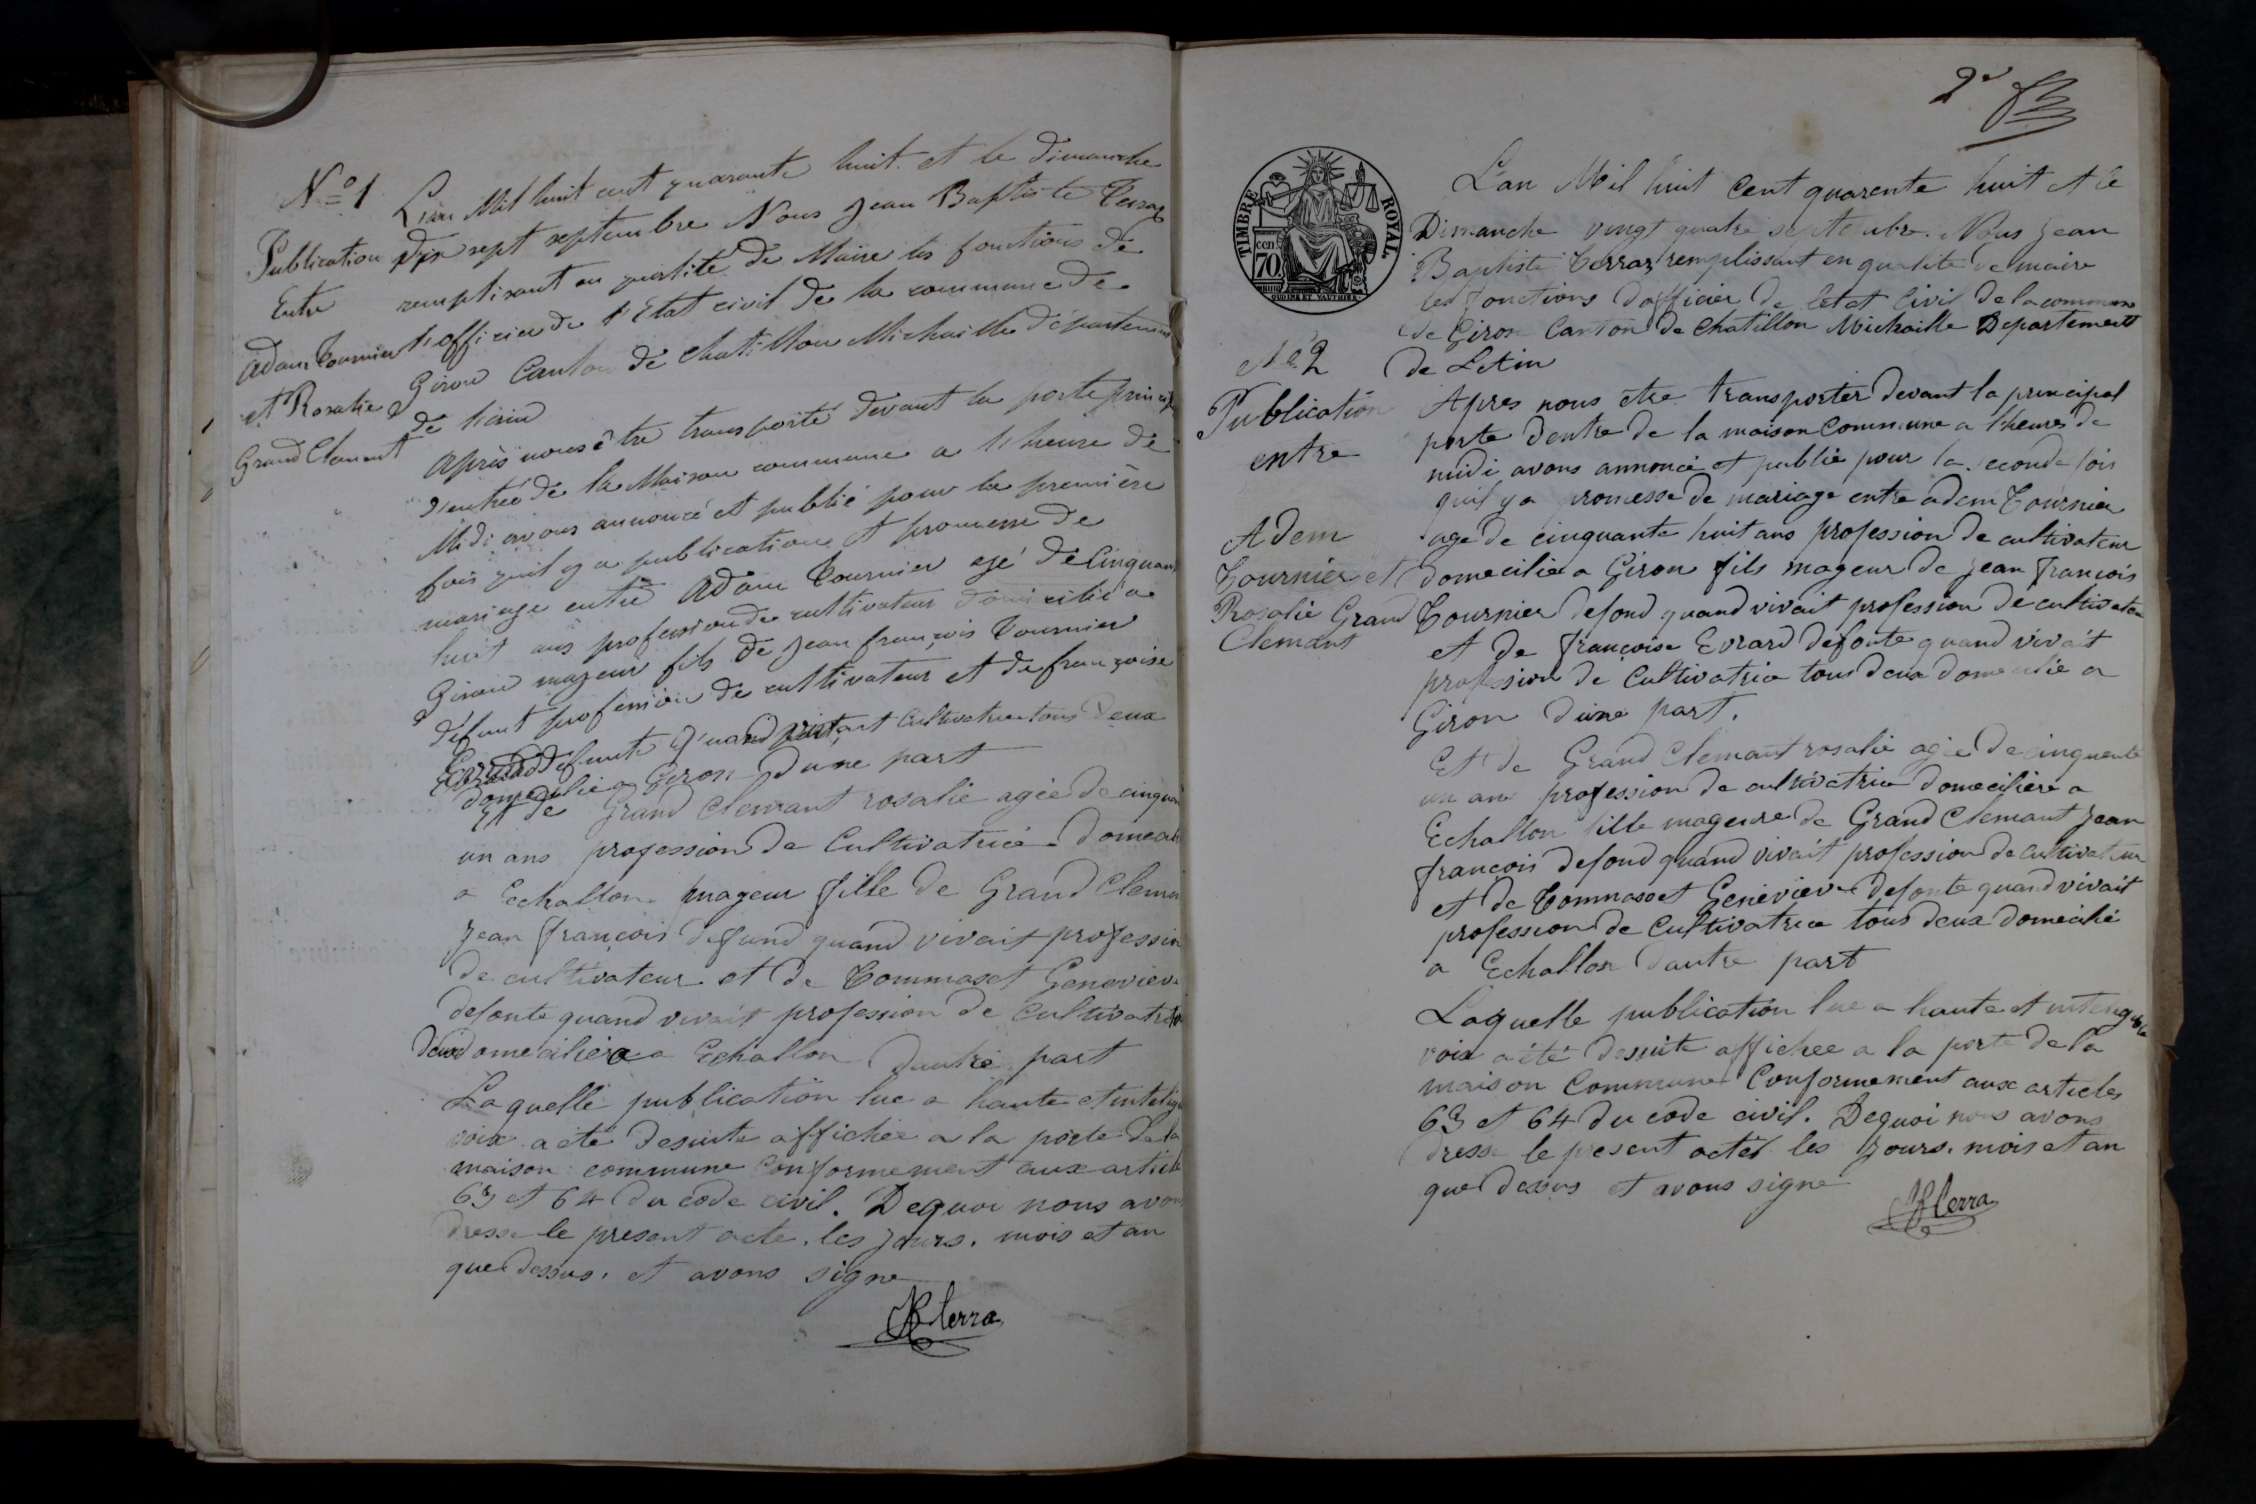 N° 1
Publication
Entre
Adam Tournier
et Rosalie
Grand Clement
L'an Mil huit cent quarante huit et le dimanche
dix sept septembre Nous Jean Baptiste Terraz
remplisant en qualité de Maire les fonctions de
l'officier de l'Etat civil de la commune de
Giron Canton de Chatillon Michaille département
de l'ain
Après nous être transporté devant la porte princip
d'entrée de la Maison commune a l'heure de
Midi avons annoncé et publié pour la première
fois quil y a publication et promesse de
mariage entre Adam Tournier agé de Cinquant
huit ans profession de cultivateur domicilié a
Giron mageur fils de Jean françois Tournier
défunt profession de cultivateur et de françoise
Evrard defunte quand vivait cultivatrice tous deux
domecilie a Giron dune part
Et de Grand Clemant rosalie agée de cinquan
un ans profession de Cultivatrice domecili
a Echallon mageur fille de Grand Cleman
Jean françois defund quand vivait profession
de cultivateur et de Tommaset Genevieve
defonte quand vivait profession de Cultivatrice
deux domeciliéa a Echallon dautre part
Laquelle publication lue a haute et inteligi
voix a été desuite affichée a la porte de la
maison commune Conformement aux article
63 et 64 du code civil. De quoi nous avon
dresse le present acte. les jours. mois et an
que dessus. et avons signe
JBterra
2e
TIMBRE ROYAL.
cen
70
Lan Mil huit Cent quarente huit et le
Dimanche vingt quatre septembre. Nous Jean
Baptiste Terraz remplissant en qualite de maire
les fonctions dofficier de letat Civil de la commune
de Giron Canton de Chatillon Michaille Departement
de LAin
N° 2
Publication
entre
Adem
Tournier et
Rosalie Grand
Clemant
Apres nous etre transporter devant la principal
porte dentre de la maison Commune a lheures de
midi avons annoncé et publie pour la seconde fois
quil y a promesse de mariage entre adem Tournier
age de cinquante huit ans profession de cultivateur
domecilie a Giron fils mageur de Jean françois
Tournier defond quand vivait profession de cultivateur
et de françoise Evrard defonte quand vivait
profession de Cultivatrice tous deux domecilie a
Giron dune part.
Et de Grand Clemant rosalie agée de cinquente
un ans profession de cultivatrice domeciliere a
Echallon fille mageure de Grand Clemant Jean
françois defond quand vivait profession de cultivateur
et de Tommaset Genevieve defonte quand vivait
profession de Cultivatrice tous deux domecilié
a Echallon dautre part
Laquelle publication lue a haute et intengible
voix a été desuite affichee a la porte de la
maison Commune Conformement aux articles
63 et 64 du code civil. De quoi nous avons
dresse le present actes les jours. mois et an
que dessus et avons signe
JBterra